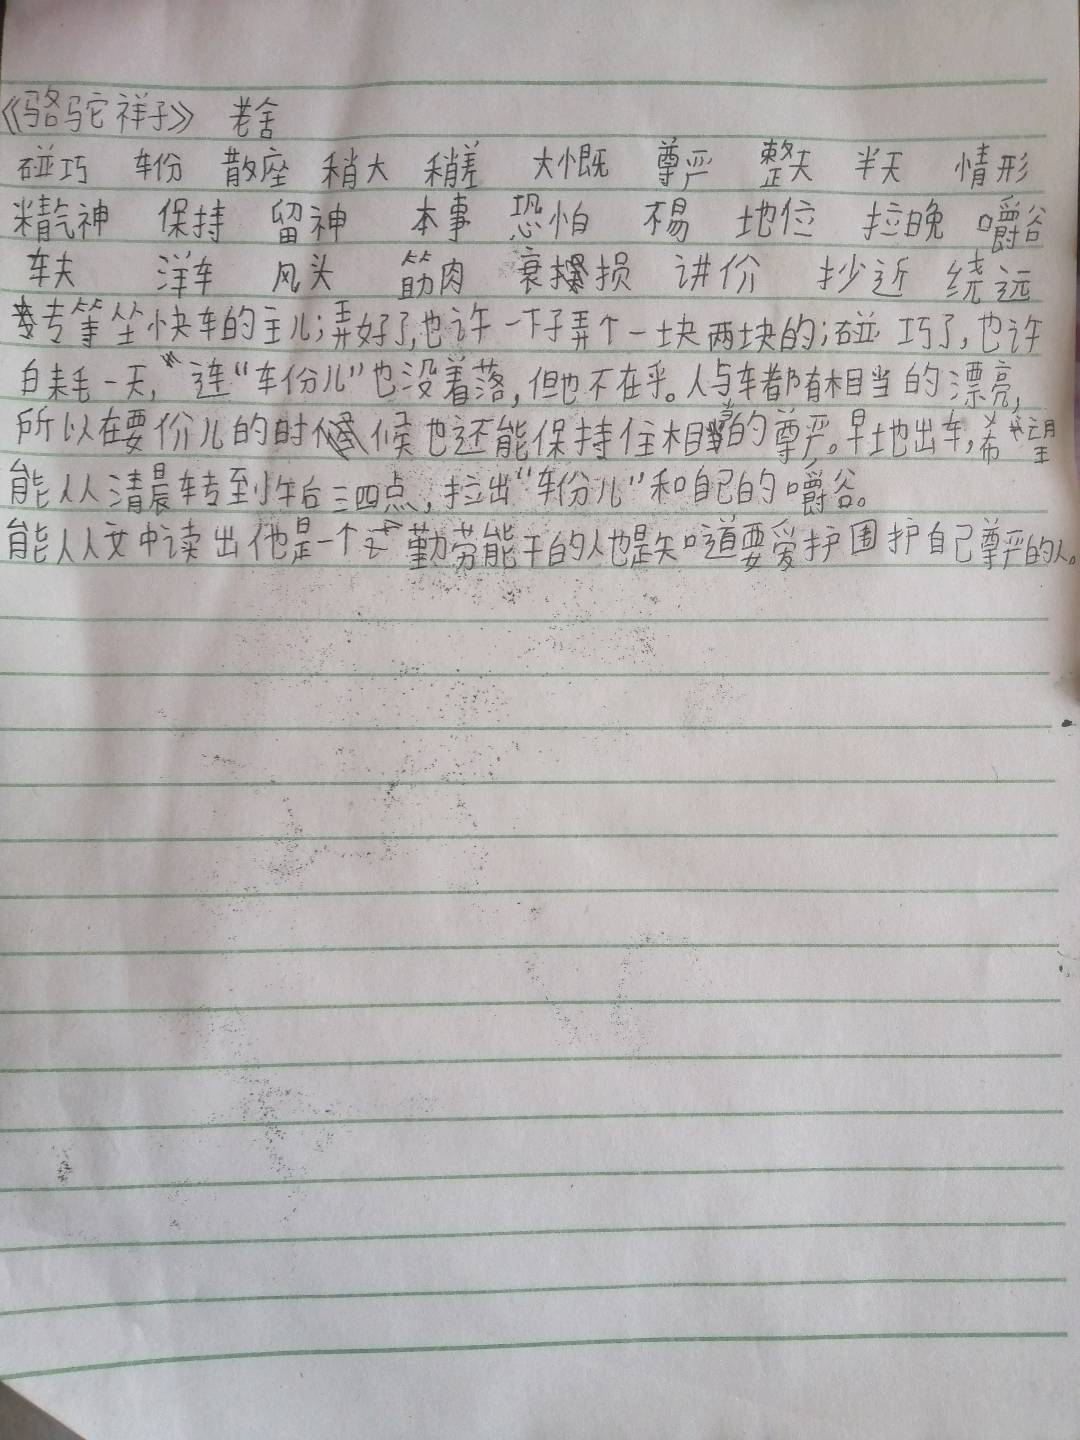 《骆驼祥子》 老舍
碰巧 车份 散座 稍大 稍差 大慨 尊严 整天 半天 情形
精气神 保持 留神 本事 恐怕 地位 拉晚 嚼谷
车夫 洋车 风头 筋肉 衰损 讲价 抄近 绕远
专等坐快车的主儿;弄好了,也许一下子弄个一块两块的;碰巧了,也许
白耗一天,连“车份儿”也没着落,但也不在乎。人与车都有相当的漂亮,
所以在要价儿的时候也还能保持住相当的尊严。早地出车,希望
能从清晨转到午后三四点,拉出“车份儿”和自己的嚼谷。
能从文中读出他是一个勤劳能干的人也是知道要爱护围护自己尊严的人。